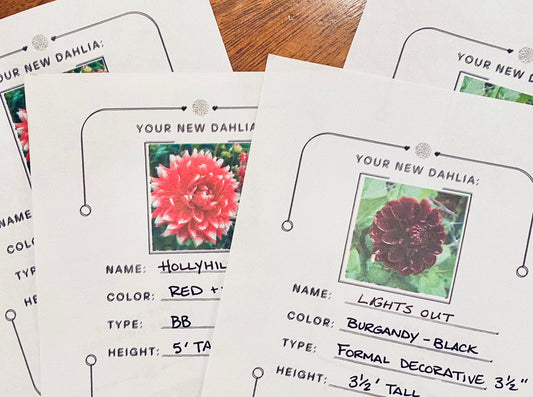 YOUR NEW DAHLIA:
NAME
COLO
TYPE
HEIG
YOUR NEW DAHLIA
NAME: HOLLYHIL
COLOR: RED +
TYPE: BB
HEIGHT: 5' TA
YOUR NEW DAHLIA:
NAME: LIGHTS OUT
COLOR: BURGANDY - BLACK
TYPE: FORMAL DECORATIVE 3½"
HEIGHT: 3½' TALL
YOUR NEW DAHLIA: